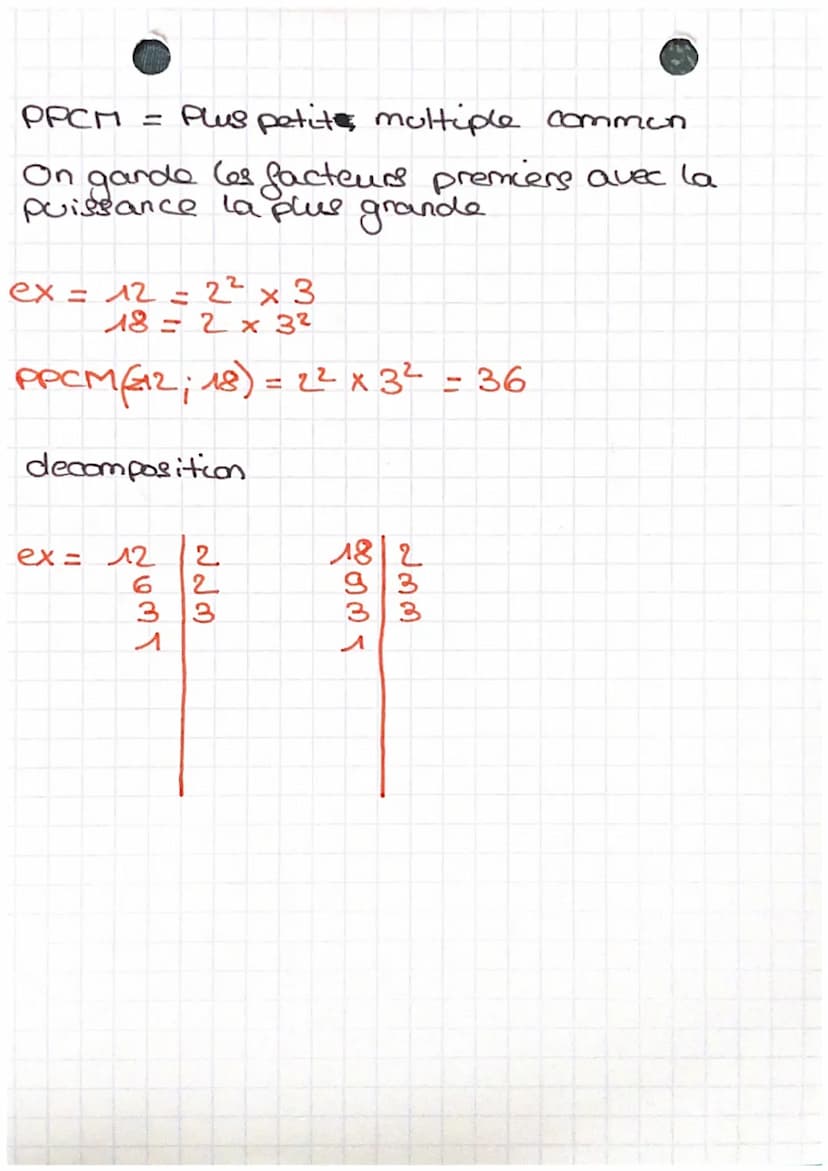 PPCM = Plus petit multiple commun
On garde les facteurs premiers avec la
puissance la plus grande
ex = 12 = 2² × 3
18 = 2 × 3²
PPCM(12 ; 18) = 2² × 3² = 36
decomposition
ex = 12 | 2 18 | 2
6 | 2 9 | 3
3 | 3 3 | 3
1 | 1 |